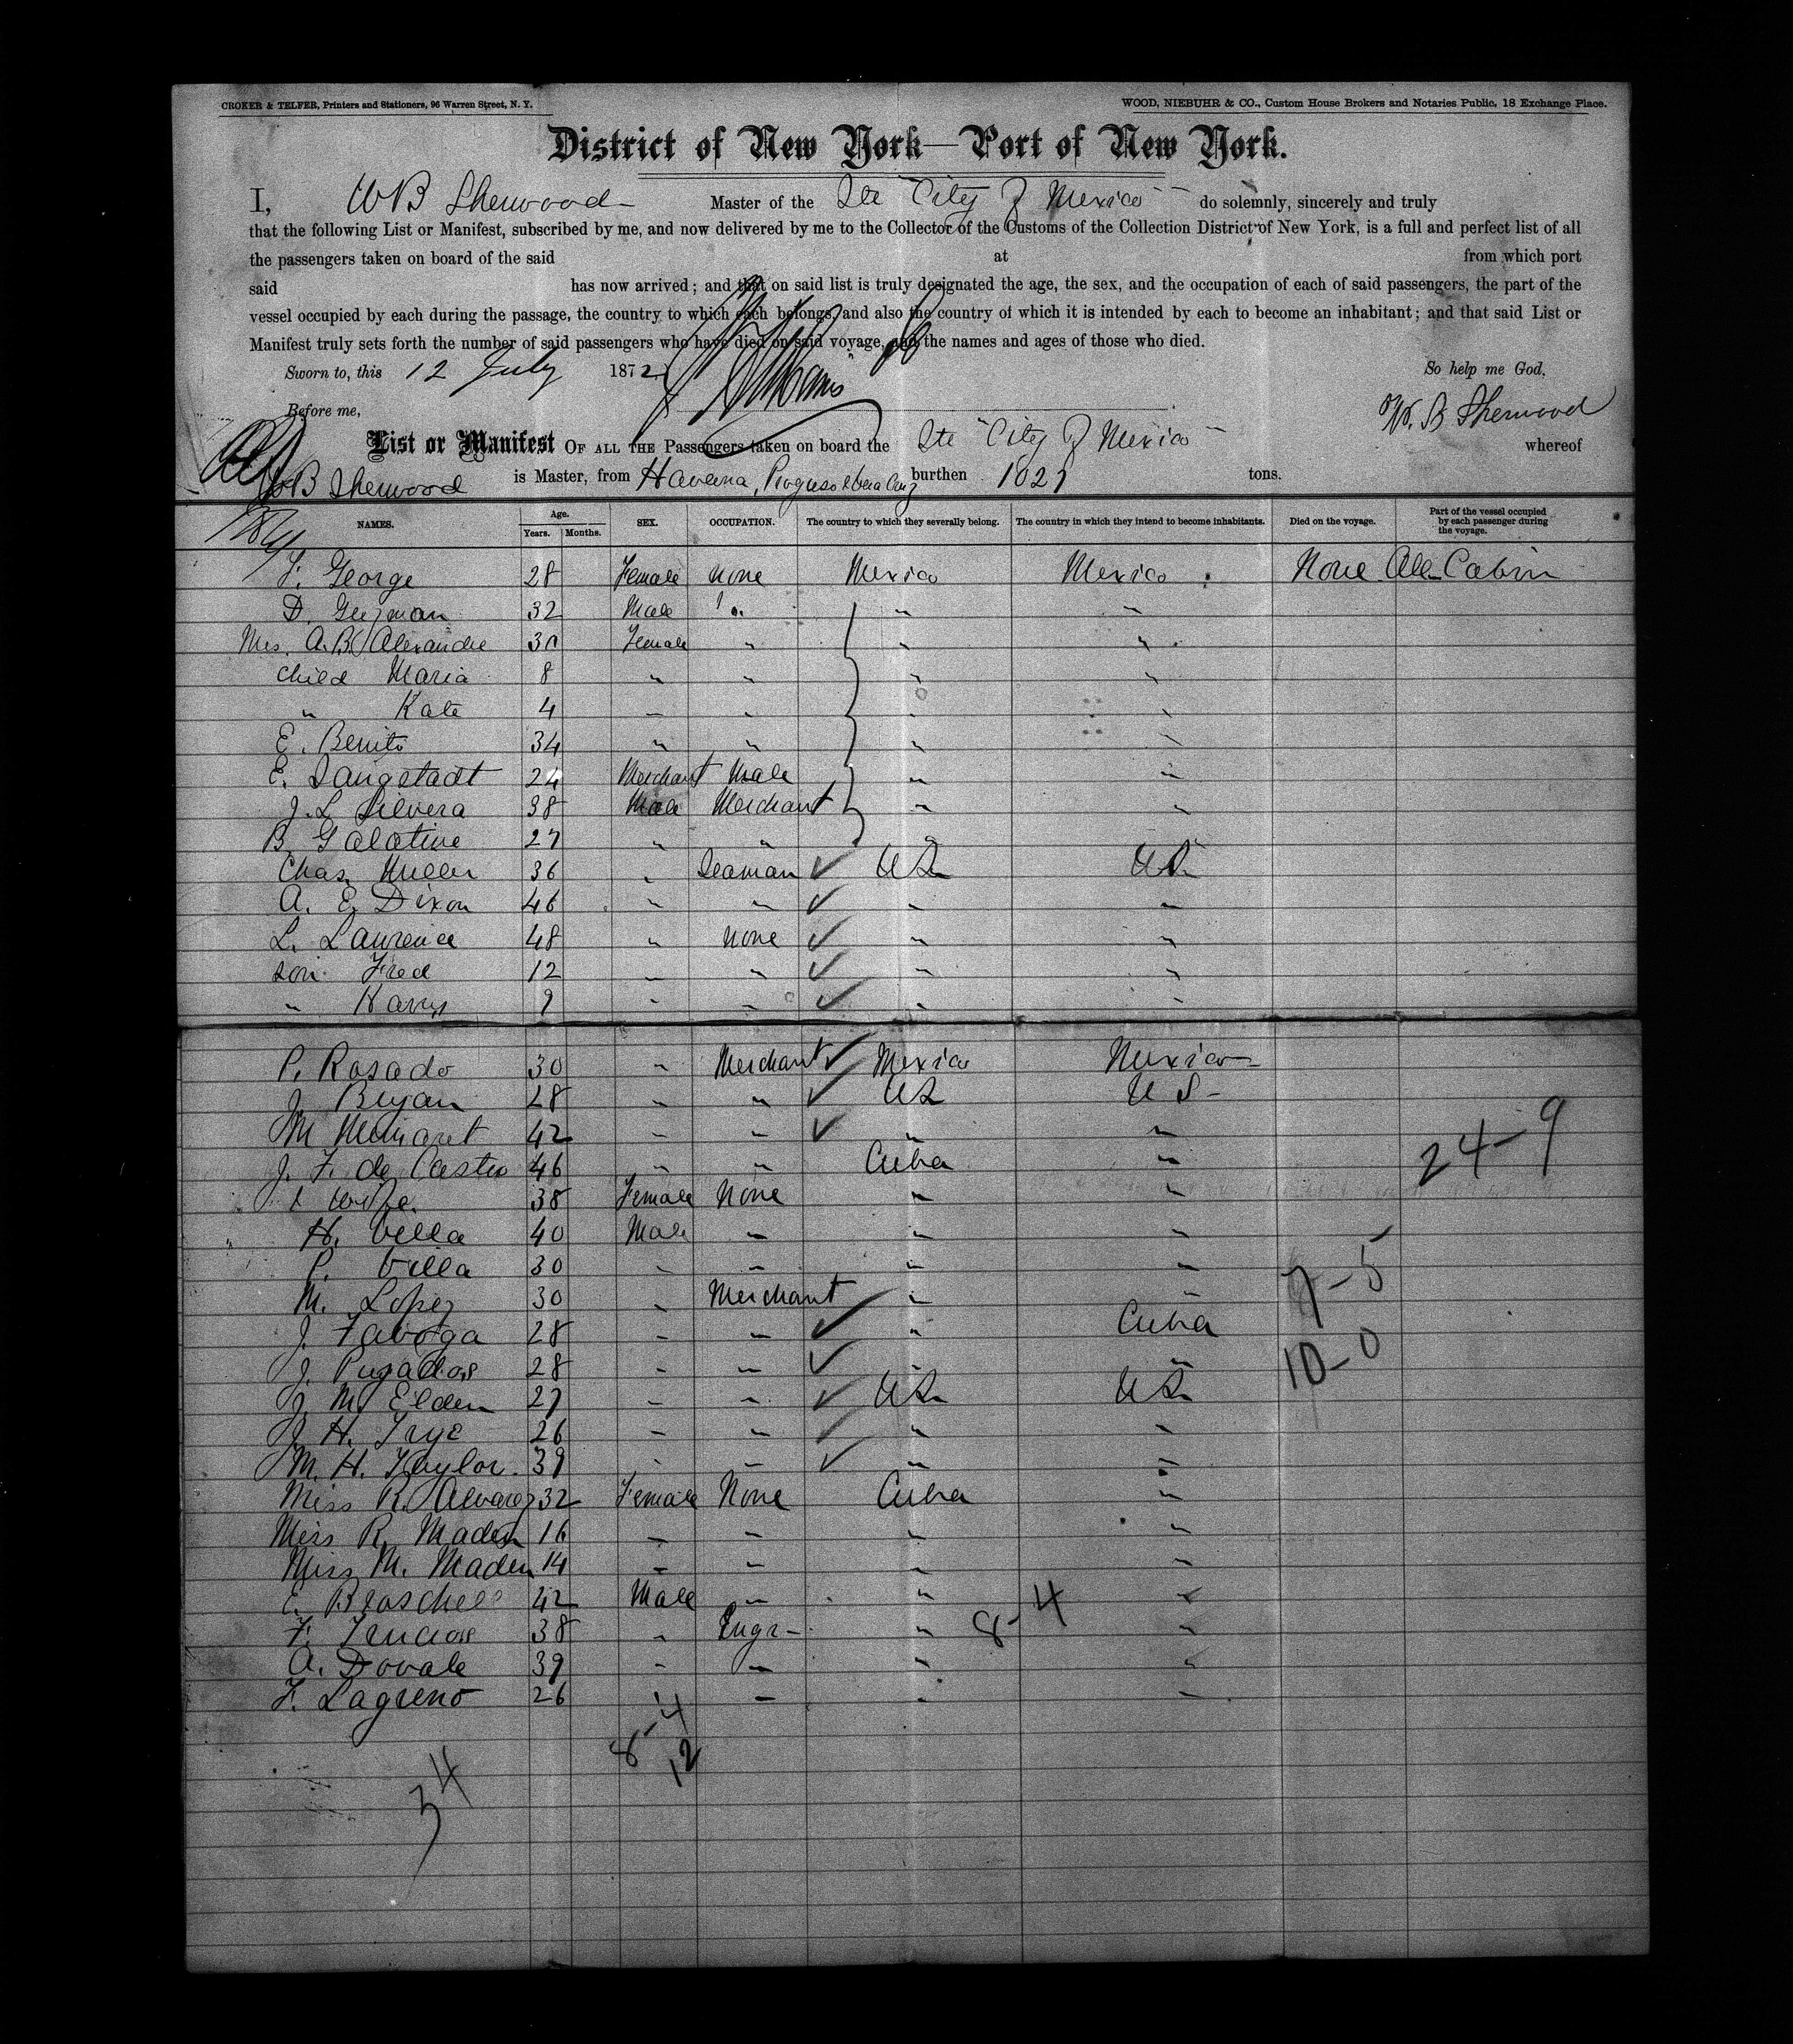 CROKER & TELFER, Printers and Stationers, 96 Warren Street, N. Y.
WOOD, NIEBUHR & CO., Custom House Brokers and Notaries Public, 18 Exchange Place.
District of New York—Port of New York.
I, WB Sherwood Master of the Ste "City of Mexico" do solemnly, sincerely and truly
that the following List or Manifest, subscribed by me, and now delivered by me to the Collector of the Customs of the Collection District of New York, is a full and perfect list of all
the passengers taken on board of the said at from which port
said has now arrived; and that on said list is truly designated the age, the sex, and the occupation of each of said passengers, the part of the
vessel occupied by each during the passage, the country to which each belongs, and also the country of which it is intended by each to become an inhabitant; and that said List or
Manifest truly sets forth the number of said passengers who have died on said voyage, and the names and ages of those who died.
Sworn to, this 12 July 1872 So help me God,
Before me, Wm. B Sherwood
List or Manifest OF ALL THE Passengers taken on board the Ste "City of Mexico" whereof
WB Sherwood is Master, from Havana, Progreso & Vera Cruz burthen 1027 tons.
NAMES. Age. Years. Months. SEX. OCCUPATION. The country to which they severally belong. The country in which they intend to become inhabitants. Died on the voyage. Part of the vessel occupied by each passenger during the voyage.
F. George 28 Female None Mexico Mexico None All Cabin
D. Guzman 32 Male " " "
Mrs. A.B. Alexandre 30 Female " " "
Child Maria 8 " " " "
" Kate 4 " " " "
E. Benito 34 " " " "
E. Langstadt 24 Merchant Male " "
J. L. Silvera 38 Male Merchant " "
B. Galatine 27 " " " "
Chas. Muller 36 " Seaman US US
A. E. Dixon 46 " " " "
L. Laurence 48 " None " "
son Fred 12 " " " "
" Harry 9 " " " "
P. Rosado 30 " Merchant Mexico Mexico
J. Bryan 28 " " US US
M 42 " " " "
J. F. de Castro 46 " " Cuba "
& wife 38 Female None " "
H. Villa 40 Male " " "
P. Villa 30 " " " "
M. Lopez 30 " Merchant " "
J. Faborga 28 " " " Cuba
J. Pugadas 28 " " " "
J. M. Elden 27 " " US US
J. H. Frye 26 " " " "
M. H. Taylor 39 " " " "
Miss R. Alvarez 32 Female None Cuba "
Miss R. Maden 16 " " " "
Miss M. Maden 14 " " " "
E. 42 Male " " "
F. Trucios 38 " Engr " "
A. Dovale 39 " " " "
F. Lagreno 26 " " " "
24-9
7-5
10-0
8-4
8-4
12
34